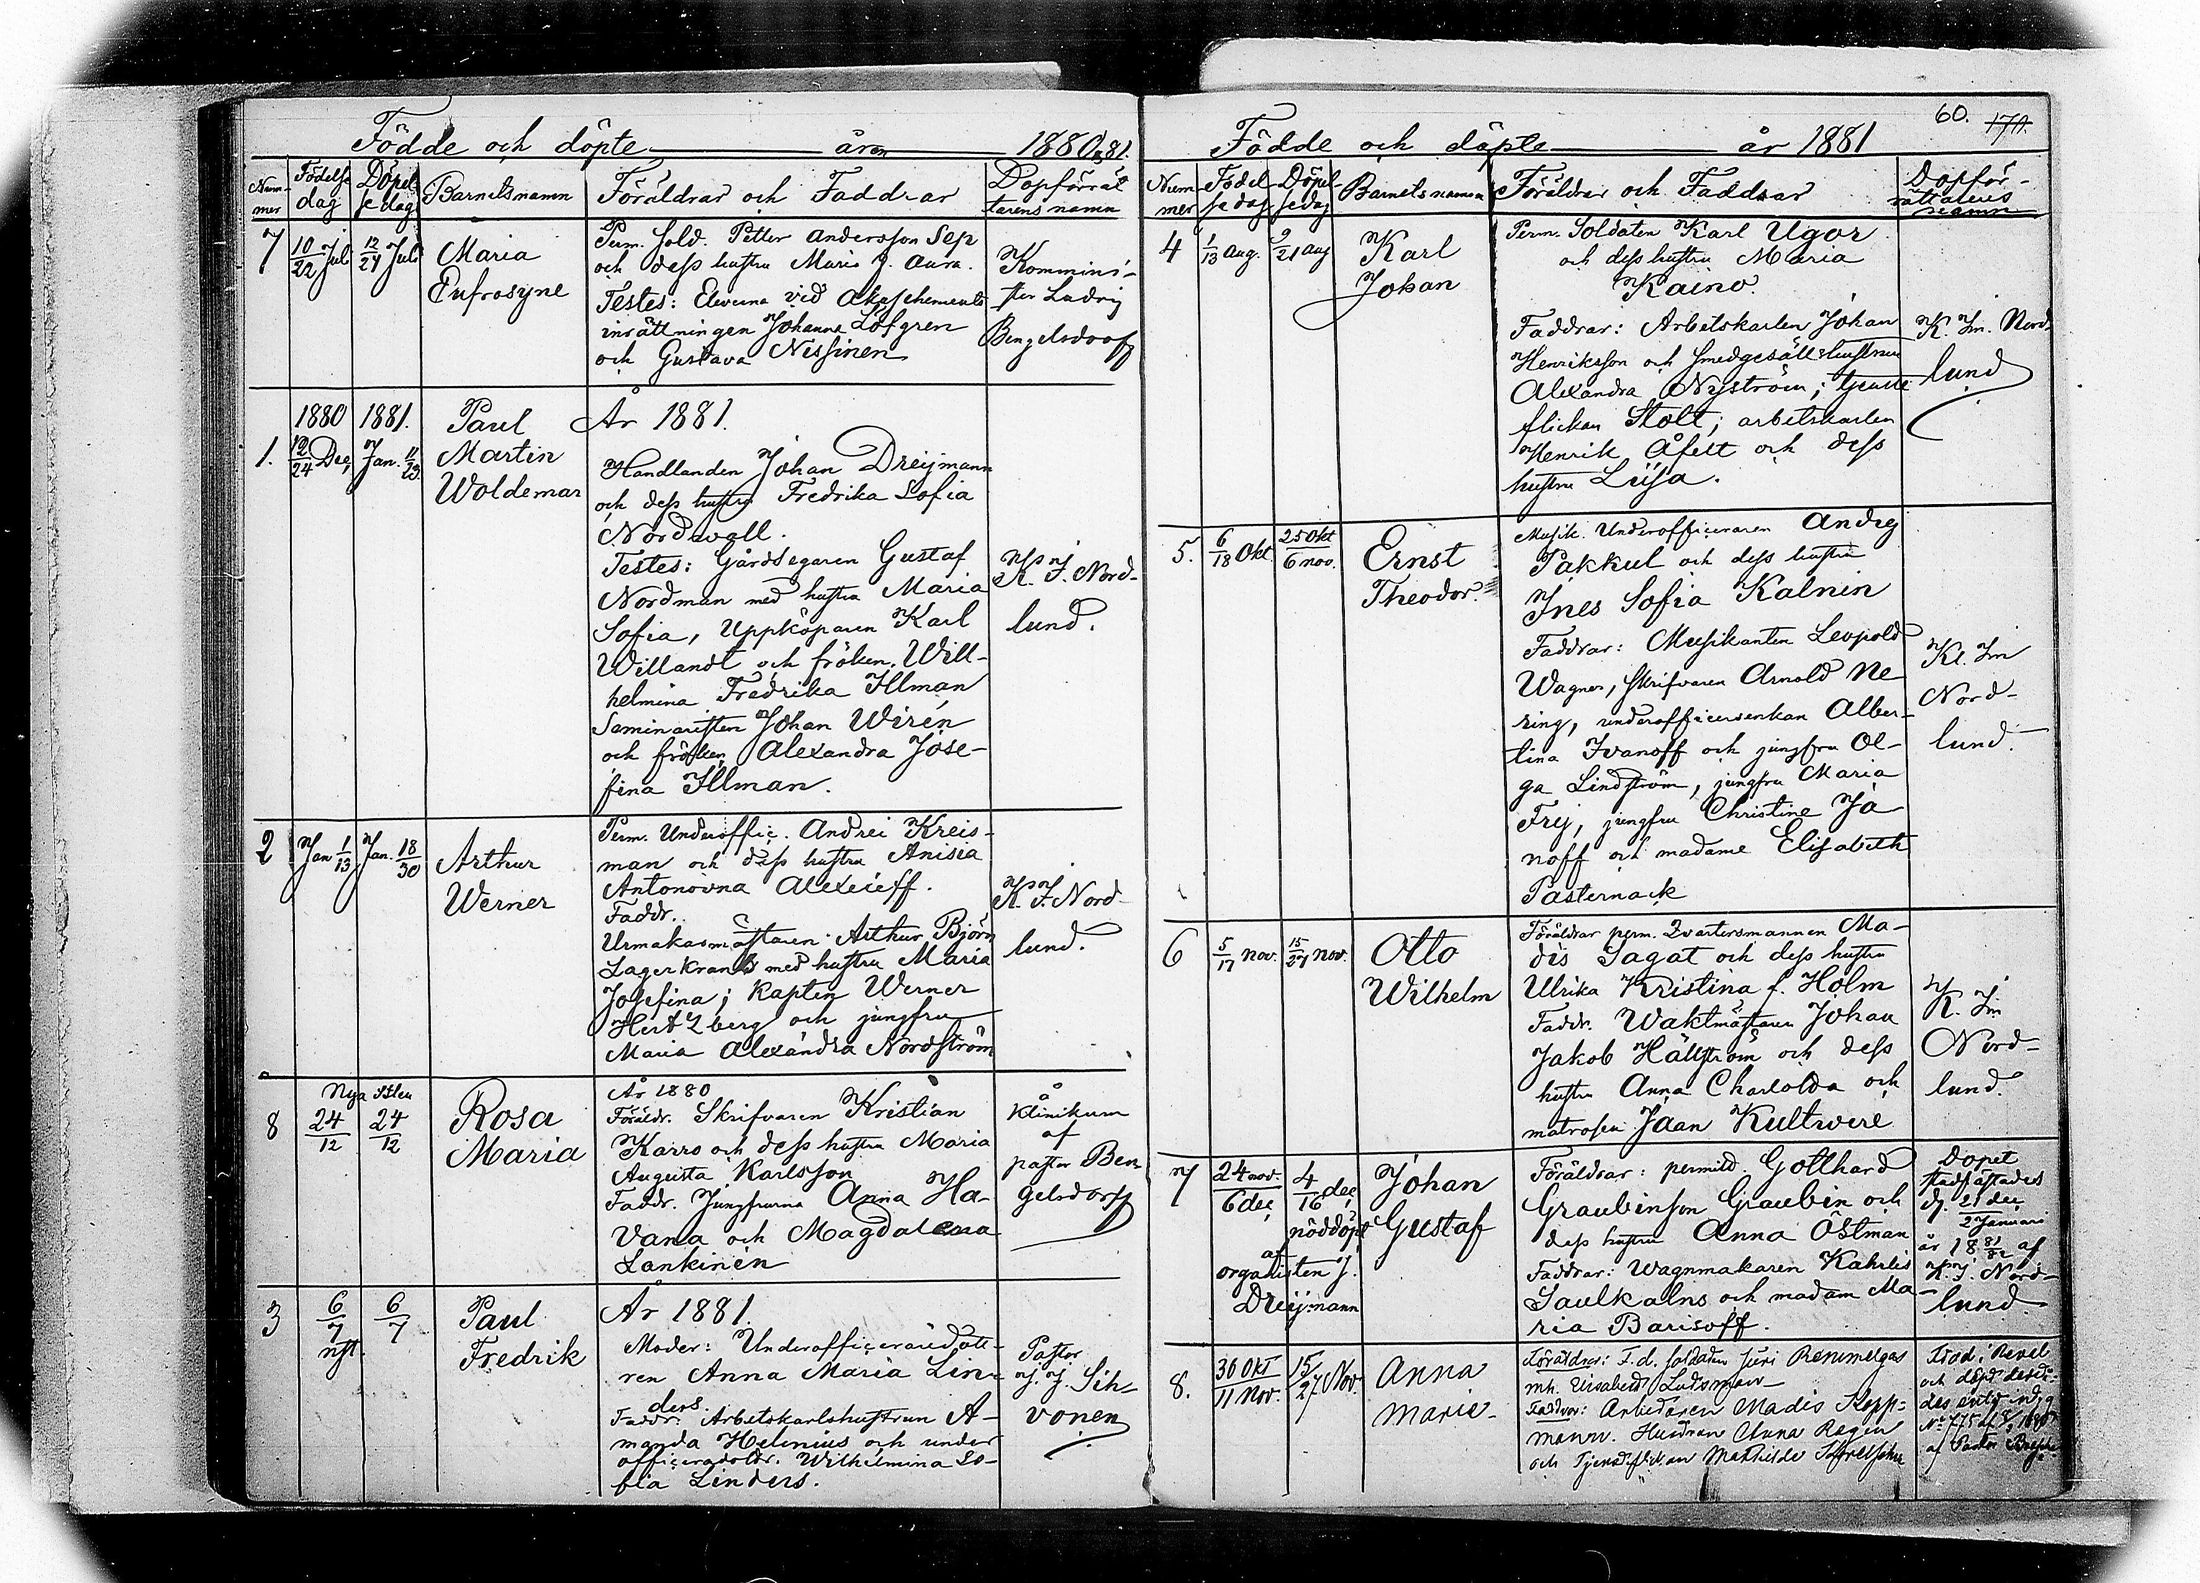 Födde och döpte åren 1880 o 81.
Num-
mer
Födelse
dag
Döpel-
se dag
Barnets namn
Föräldrar och Faddrar
Dopförrät
tarens namn
7
10/22 Juli
12/24 Juli
Maria
Eufrosyne
Perm. Sold. Petter Andersson Sep
och dess hustru Maria J. Aura.
Testes: Eleverna vid Ackouchements
inrättningen Johanna Löfgren
och Gustava Nissinen
Kommini-
ster Ludvig
Bengelsdorff
1880
1881.
År 1881.
1.
12/24 Dec,
Jan. 11/23.
Paul
Martin
Woldemar
Handlanden Johan Dreijmann
och dess hustru Fredrika Sofia
Nordwall.
Testes: Gårdsegaren Gustaf
Nordman med hustru Maria
Sofia, Uppköparen Karl
Willandt och fröken Will-
helmina Fredrika Illman
Seminaristen Johan Wirén
och fröken Alexandra Jose-
fina Illman.
K. J. Nord-
lund.
2
Jan 1/13
Jan. 18/30
Arthur
Werner
Perm. Underoffic. Andrei Kreis-
man och dess hustru Anisia
Antonovna Alexeieff.
Faddr.
Urmakaremästaren Arthur Björn
Lagerkrantz med hustru Maria
Josefina; Kapten Werner
Hertzberg och jungfru
Maria Alexandra Nordström
K. J. Nord-
lund.
Nya Stilen
8
24/12
24/12
Rosa
Maria
År 1880
Föräldr. Skrifvaren Kristian
Karro och dess hustru Maria
Augusta Karlsson
Faddr. Jungfrurna Anna Ha-
vana och Magdalena
Lankinen
Å
Klinikum
af
pastor Ben
gelsdorff
3
6/7
nst.
6/7
Paul
Fredrik
År 1881.
Moder: Underofficersdott-
ren Anna Maria Lin-
ders.
Faddr. Arbetskarlshustrun A-
manda Helenius och under
officersdottr. Wilhelmina So-
fia Linders.
Pastor
J. J. Sih-
vonen
60. 170.
Födde och döpte år 1881
Num-
mer
Födel-
se dag
Döpel-
se dag
Barnets namn
Föräldrar och Faddrar
Dopför-
rättarens
namn
4
1/13 Aug.
9/21 Aug
Karl
Johan
Perm. Soldaten Karl Ugar
och dess hustru Maria
Kaino.
Faddrar: Arbetskarlen Johan
Henriksson och Smedgesällshustrun
Alexandra Nyström; tjenste
flickan Stolt; arbetskarlen
Henrik Åfelt och dess
hustru Lüsa.
K. Jm. Nord-
lund
5.
6/18 Okt.
25 Okt/6 nov.
Ernst
Theodor.
Musik. Underofficeraren Andrej
Pakkul och dess hustru
Ines Sofia Kalnin
Faddrar: Musikanten Leopold
Wagner, Skrifvaren Arnold Ne
ring, underofficersenkan Alber-
tina Ivanoff och jungfru Ol-
ga Lindström, jungfru Maria
Frej, jungfru Christine Ja
noff och madame Elisabeth
Pasternack
Kl. Jm
Nord-
lund.
6
5/17 nov.
15/27 nov.
Otto
Wilhelm
Föräldrar perm. Qvartersmannen Ma-
dis Sagat och dess hustru
Ulrika Kristina f. Holm
Faddr. Waktmästaren Johan
Jakob Hällström och dess
hustru Anna Charlotta och
matrosen Jaan Kultwere
K. Jm
Nord-
lund.
7
24 nov./6 dec.
4/16 dec.
nöddöpt
af
organisten J.
Dreijmann
Johan
Gustaf
Föräldrar: permitd. Gotthard
Graubinson Graubin och
dess hustru Anna Östman
Faddrar: Wagnmakaren Kahrlis
Saulkalns och madam Ma-
ria Barisoff.
Dopet
stadfästades
d. 21 dec/2 Januari
år 18 81/82 af
K. J. Nord-
lund
8.
30 Okt/11 Nov.
15/27 Nov.
Anna
Marie
Föräldrar: F. d. soldaten Jüri Remmelgas
Faddrar: Arbetaren Madis Kopp-
mann. Hustrun Anna Regin
och Tjenstflickan Mathilde
Född i Revel
och döpt
af Pastor